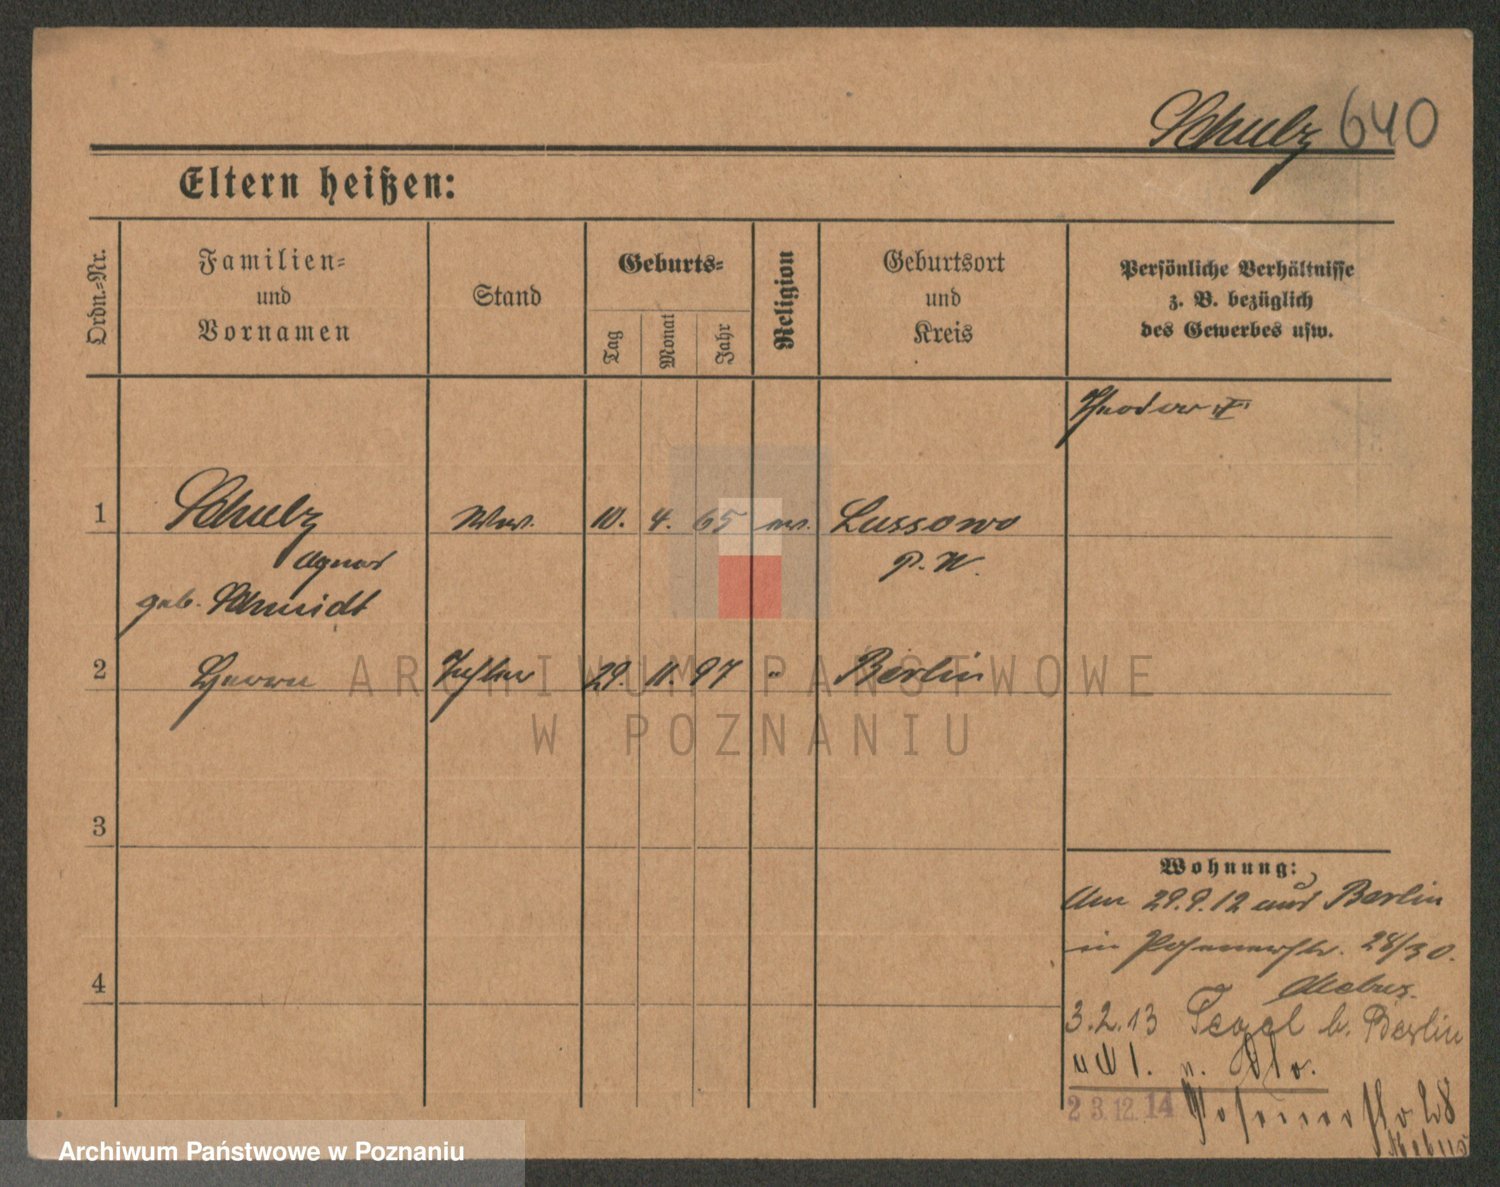 Schulz 640
Eltern heißen:
Ordn.-Nr.
Familien-
und
Vornamen
Stand
Geburts-
Tag
Monat
Jahr
Religion
Geburtsort
und
Kreis
Persönliche Verhältnisse
z. B. bezüglich
des Gewerbes usw.
Theodor
1 Schulz Ww. 10. 4. 65 ev. Lussowo
Agnes P. W.
geb. Schmidt
2 29. 11. 97 " Berlin
3
4
Wohnung:
Am 29.9.12 aus Berlin
in Posenerstr. 28/30.
3.2.13 Tegel b. Berlin
23.12.14 Posenerstr 28
ARCHIWUM PAŃSTWOWE
W POZNANIU
Archiwum Państwowe w Poznaniu